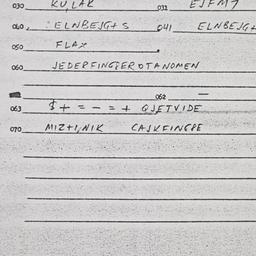 030 KULAK 032 EJFM7
040 ELNBEJG+S 041 ELNBEJG+
050 FLAX
060 JEDERFINGIEROTANOMEN
062 —
063 $ + = - = + GJETVIDE
070 MIZ+1,NIK CAJKFINGRE